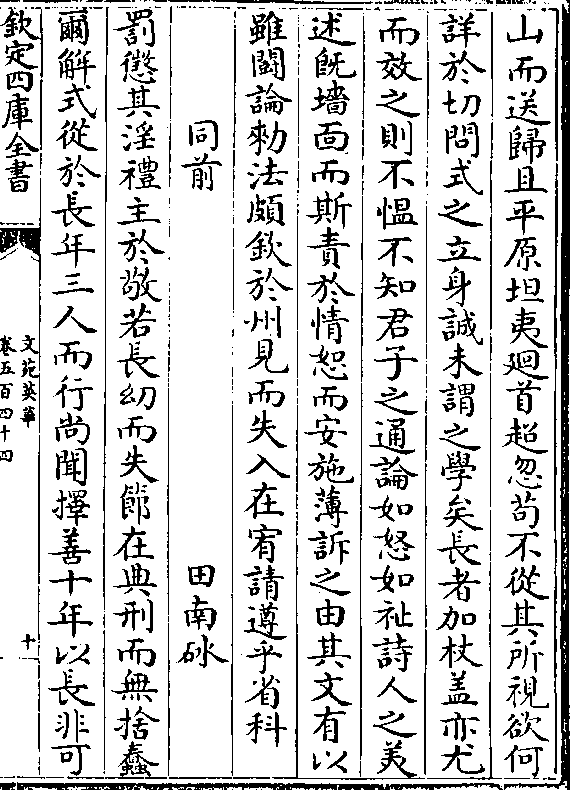 山而送歸且平原坦夷廻首超忽苟不從其所視欲何
詳於切問式之立身誠未謂之學矣長者加杖盖亦尤
而效之則不愠不知君子之通論如怒如祉詩人之美
述旣墻面而斯責於情恕而安施薄訴之由其文有以
雖闘論勑法頗欽於州見而失入在宥請遵乎省科
同前
田南砅
罰懲其淫禮主於敬若長幼而失節在典刑而無捨蠢
爾解式從於長年三人而行尚聞擇善十年以長非可
欽定四庫全書
文苑英華
卷五百四十四
十